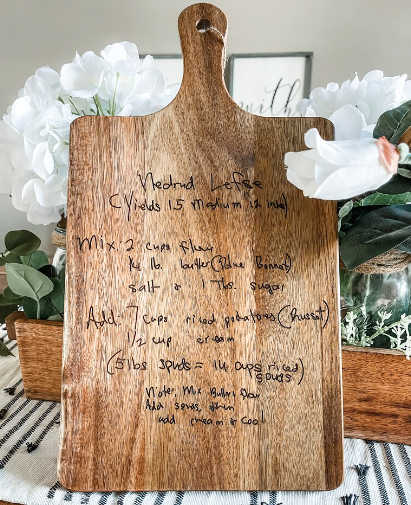 Nedrud Lefse
(Yields 15 medium 12 inch)
Mix: 2 cups flour
lb. butter (Blue Bonnet)
salt & 1 Tbs. sugar
Add: 7 cups riced potatoes (Russet)
1/2 cup cream
(5 lbs spuds = 14 cups riced
spuds)
Note: Mix Butter, Flour
Add spuds, then
add cream & cool
with